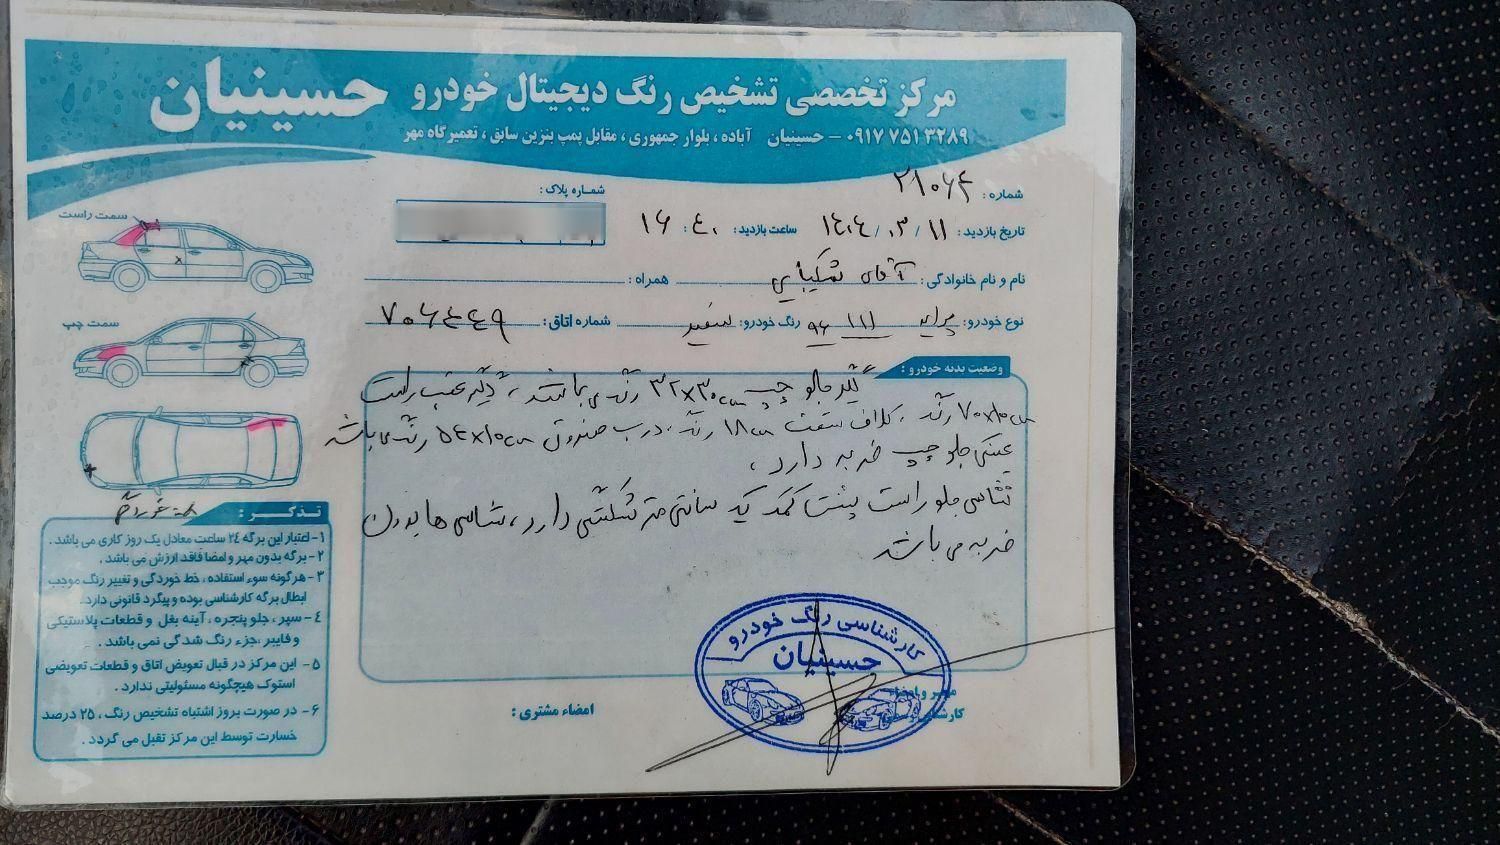 مرکز تخصصی تشخیص رنگ دیجیتال خودرو حسینیان
۰۹۱۷ ۷۵۱ ۳۲۸۹ – حسینیان آباده ، بلوار جمهوری ، مقابل پمپ بنزین سابق ، تعمیرگاه مهر
شماره : ۲۱۰۶۴
شماره پلاک :
تاریخ بازدید : ۱۴۰۴/۰۳/۱۱ ساعت بازدید : ۱۶:۴۰
نام و نام خانوادگی : آقای شکیبایی همراه :
نوع خودرو : پراید ۱۱۱ ۹۶ رنگ خودرو : سفید شماره اتاق : ۷۰۶۴۴۹
وضعیت بدنه خودرو :
گلگیر جلو چپ ۳۲×۳۰cm رنگ می باشد ، دیگر عقب راست
۷۰×۱۰cm رنگ ، کلاف سقف ۱۸cm رنگ ، درب صندوق ۵۴×۱۰cm رنگ می باشد
سینی جلو چپ ضربه دارد ،
شاسی جلو راست پشت کمک یک سانتی متر شکستگی دارد ، شاسی ها بدون
ضربه می باشد
سمت راست
سمت چپ
تذکر :
۱- اعتبار این برگه ۲۴ ساعت معادل یک روز کاری می باشد .
۲- برگه بدون مهر و امضا فاقد ارزش می باشد .
۳- هرگونه سوء استفاده ، خط خوردگی و تغییر رنگ موجب
ابطال برگه کارشناسی بوده و پیگرد قانونی دارد .
۴- سپر ، جلو پنجره ، آینه بغل و قطعات پلاستیکی
و فایبر ،جزء رنگ شدگی نمی باشد .
۵- این مرکز در قبال تعویض اتاق و قطعات تعویضی
استوک هیچگونه مسئولیتی ندارد .
۶- در صورت بروز اشتباه تشخیص رنگ ، ۲۵ درصد
خسارت توسط این مرکز تقبل می گردد .
امضاء مشتری :
مهر و امضاء
کارشناسی رنگ خودرو
حسینیان